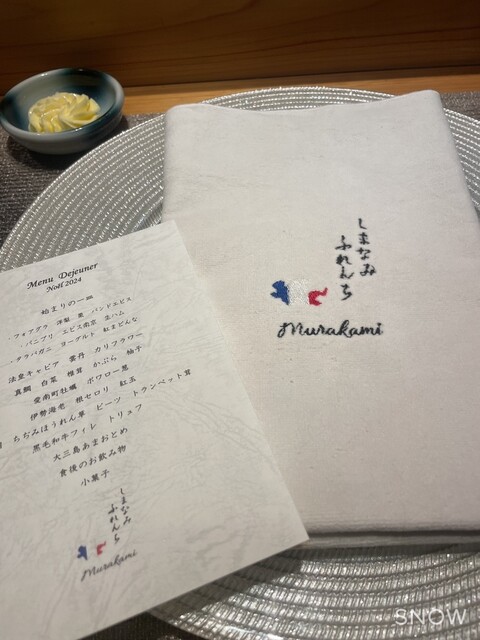 Menu Dejeuner
Noël 2024
始まりの一皿
・フォアグラ 洋梨 栗 パンドエピス
・パニプリ エビス南京 生ハム
・タラバガニ ヨーグルト 紅まどんな
法蓮キャビア 雲丹 カリフラワー
真鯛 白菜 椎茸 かぶら 柚子
愛南町牡蠣 ポワロー葱
伊勢海老 根セロリ 紅玉
ちぢみほうれん草 ビーツ トランペット茸
黒毛和牛フィレ トリュフ
大三島あまおとめ
食後のお飲み物
小菓子
しまなみ
ふれんち
Murakami
しまなみ
ふれんち
Murakami
SNOW